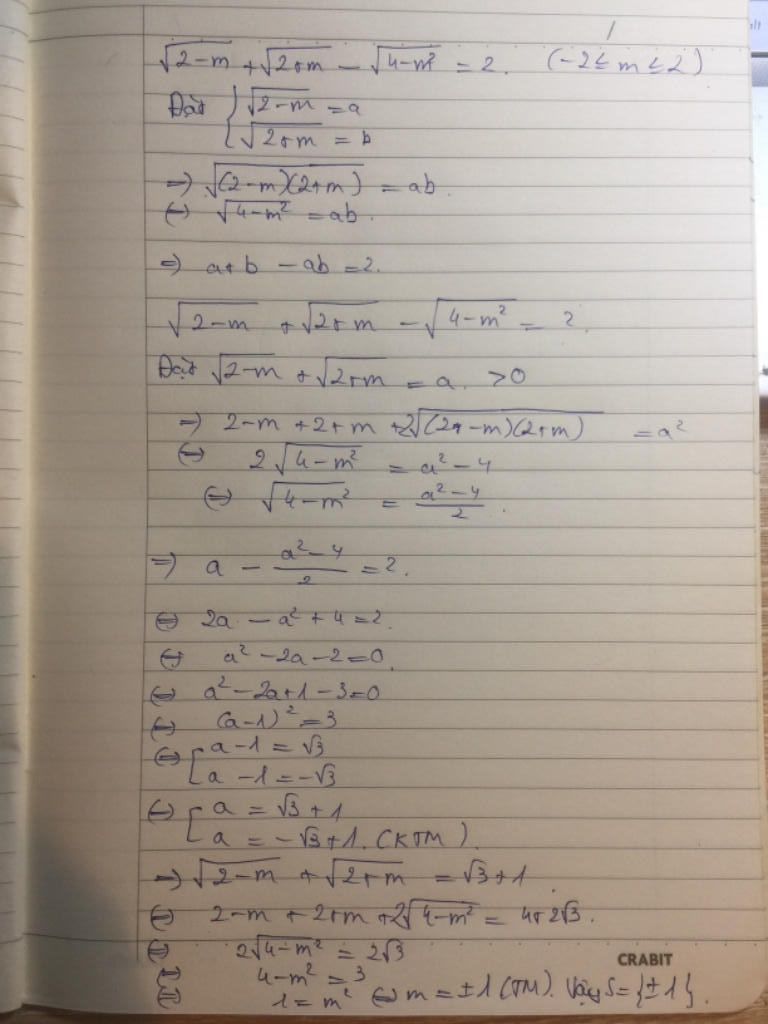 √(2-m) + √(2+m) - √(4-m²) = 2. (-2 ≤ m ≤ 2)
Đặt { √(2-m) = a
√(2+m) = b
=> √((2-m)(2+m)) = ab.
<=> √(4-m²) = ab.
=> a+b - ab = 2.
√(2-m) + √(2+m) - √(4-m²) = 2.
Đặt √(2-m) + √(2+m) = a. >0
=> 2-m + 2+m + 2√((2-m)(2+m)) = a²
<=> 2√(4-m²) = a² - 4
<=> √(4-m²) = (a²-4)/2.
=> a - (a²-4)/2 = 2.
<=> 2a - a² + 4 = 2.
<=> a² - 2a - 2 = 0.
<=> a² - 2a + 1 - 3 = 0
<=> (a-1)² = 3
<=> [ a-1 = √3
a-1 = -√3
<=> [ a = √3+1
a = -√3+1. (KTM).
=> √(2-m) + √(2+m) = √3+1.
<=> 2-m + 2+m + 2√(4-m²) = 4+2√3.
<=> 2√(4-m²) = 2√3
<=> 4-m² = 3
<=> 1 = m² <=> m = ±1 (TM). Vậy S = {±1}.
CRABIT